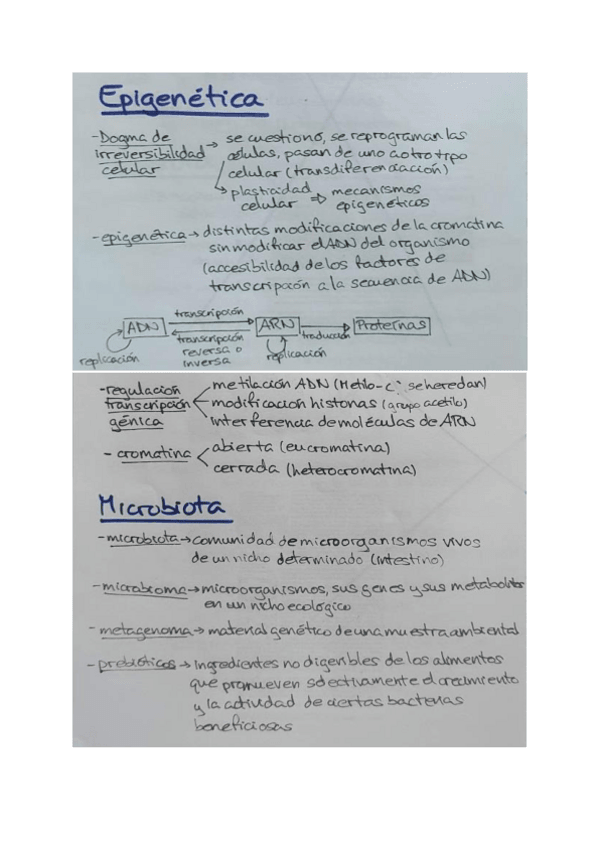 Epigenética
-Dogma de → se cuestionó, se reprograman las
irreversibilidad células, pasan de uno a otro tipo
celular celular (transdiferenciación)
↳ plasticidad ⇒ mecanismos
celular epigenéticos
-epigenética → distintas modificaciones de la cromatina
sin modificar el ADN del organismo
(accesibilidad de los factores de
transcripción a la secuencia de ADN)
transcripción
ADN ARN Proteínas
transcripción traducción
replicación reversa o replicación
inversa
-regulación metilación ADN (Metilo-C: se heredan)
transcripción modificación histonas (grupo acetilo)
génica interferencia de moléculas de ARN
- cromatina abierta (eucromatina)
cerrada (heterocromatina)
Microbiota
-microbiota → comunidad de microorganismos vivos
de un nicho determinado (intestino)
-microbioma → microorganismos, sus genes y sus metabolitos
en un nicho ecológico
-metagenoma → material genético de una muestra ambiental
-prebióticos → Ingredientes no digeribles de los alimentos
que promueven selectivamente el crecimiento
y la actividad de ciertas bacterias
beneficiosas